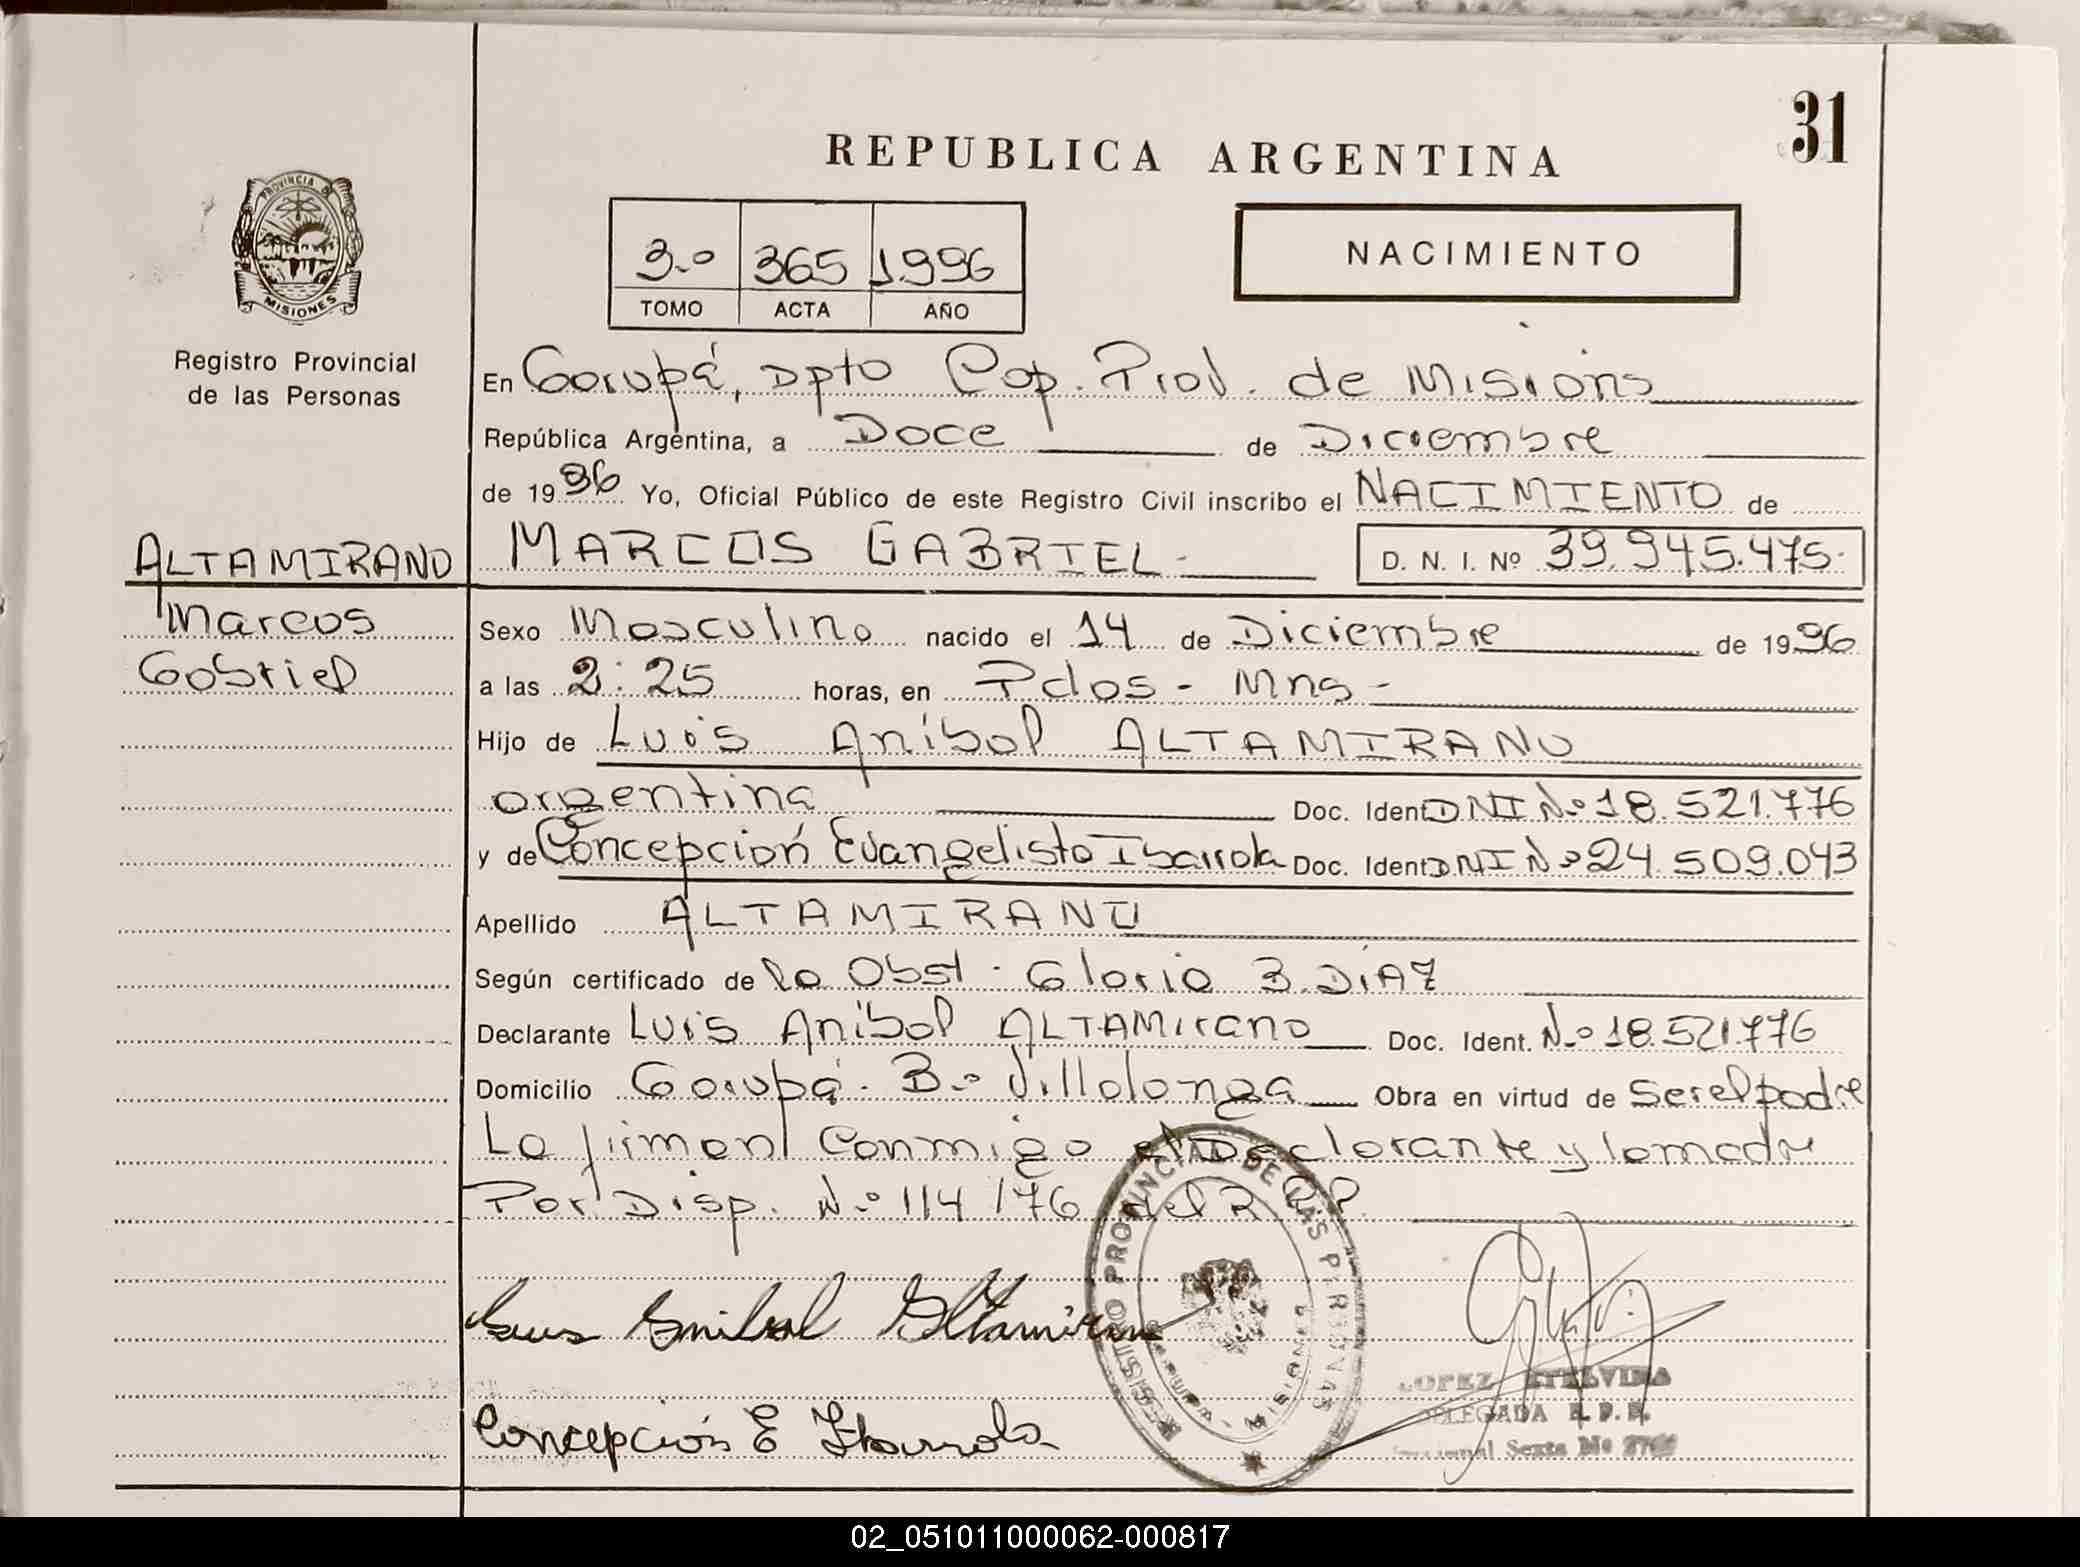 31
REPUBLICA ARGENTINA
PROVINCIA DE
MISIONES
Registro Provincial
de las Personas
3.º 365 1996
TOMO ACTA AÑO
NACIMIENTO
En Garupá, Dpto Cap. Prov. de Misions
República Argentina, a Doce de Diciembre
de 1996 Yo, Oficial Público de este Registro Civil inscribo el NACIMIENTO de
ALTAMIRANO MARCOS GABRIEL D. N. I. Nº 39.945.475
Marcos
Gabriel
Sexo Masculino nacido el 14 de Diciembre de 1996
a las 2:25 horas, en Pdas - Mns -
Hijo de Luis Aníbal ALTAMIRANO
argentina Doc. Ident DNI Nº 18.521.776
y de Concepción Evangelista Ibarrola Doc. Ident DNI Nº 24.509.043
Apellido ALTAMIRANO
Según certificado de la Obst. Gloria B. DÍAZ
Declarante Luis Aníbal ALTAMIRANO Doc. Ident. Nº 18.521.776
Domicilio Garupá - Bº Villalonga Obra en virtud de Ser el padre
La firman conmigo el Declarante y la madre
Por Disp. Nº 114/76 del R.P.P.
Luis Anibal Altamirano
Concepción E Ibarrola
REGISTRO PROVINCIAL DE LAS PERSONAS
LOPEZ ETELVINA
DELEGADA R. P. P.
02_051011000062-000817